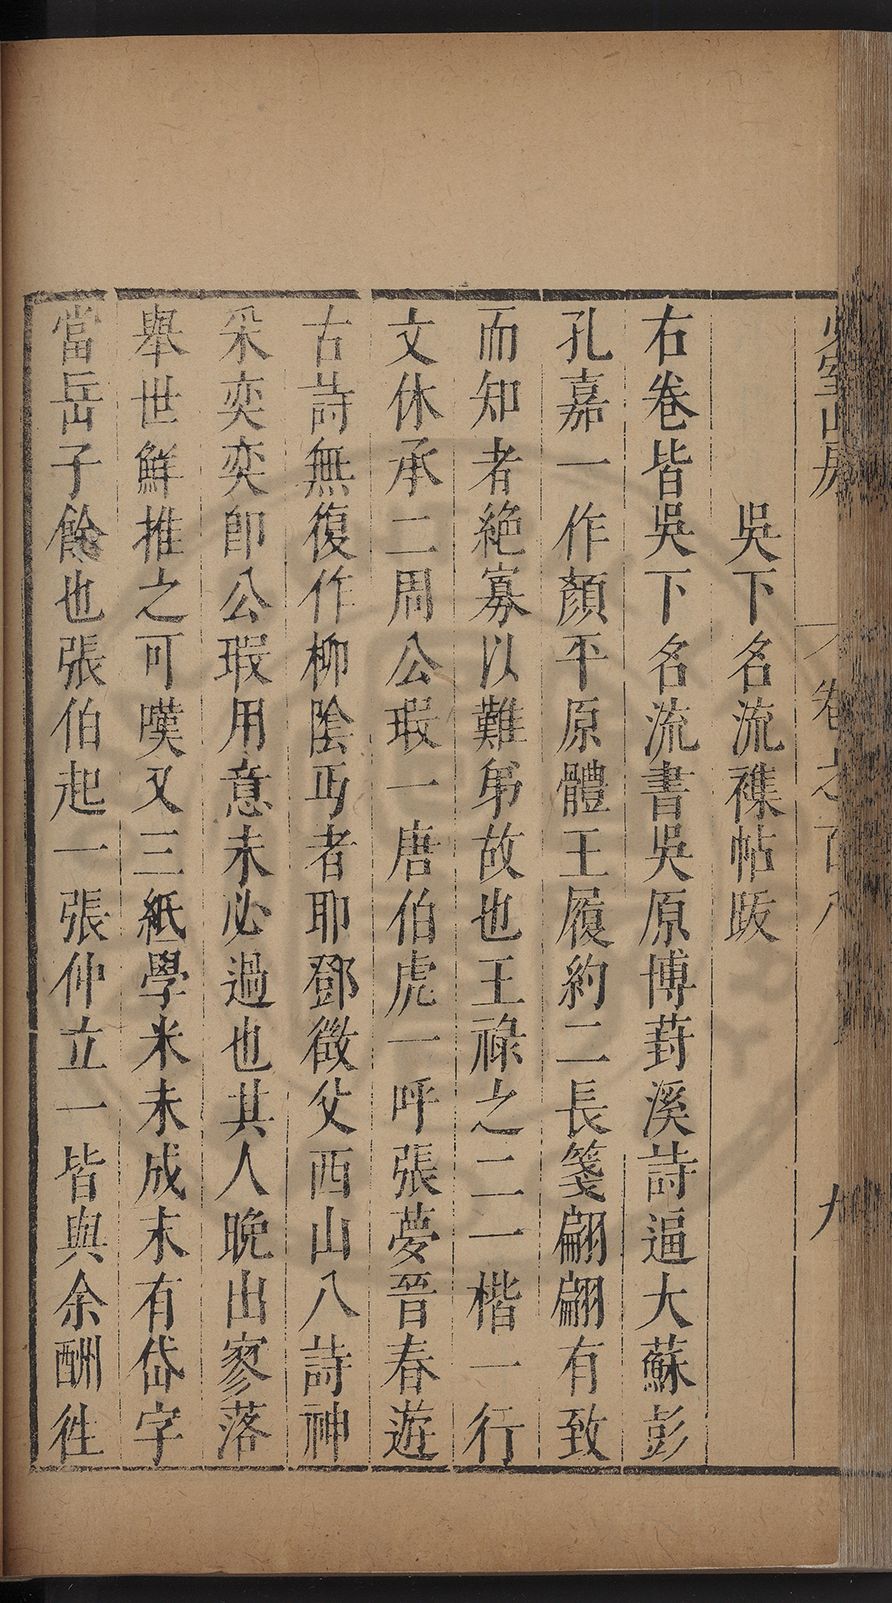 吳下名流襍帖跋
右卷皆吳下名流書吳原博葑溪詩逼大蘇彭
孔嘉一作顏平原體王履約二長箋翩翩有致
而知者絶寡以難弟故也王祿之二一楷一行
文休承二周公瑕一唐伯虎一呼張夢晉春遊
古詩無復作柳陰丏者耶鄧徵父西山八詩神
采奕奕卽公瑕用意未必過也其人晩出寥落
舉世鮮推之可嘆又三紙學米未成末有岱字
當岳子餘也張伯起一張仲立一皆與余酬徃